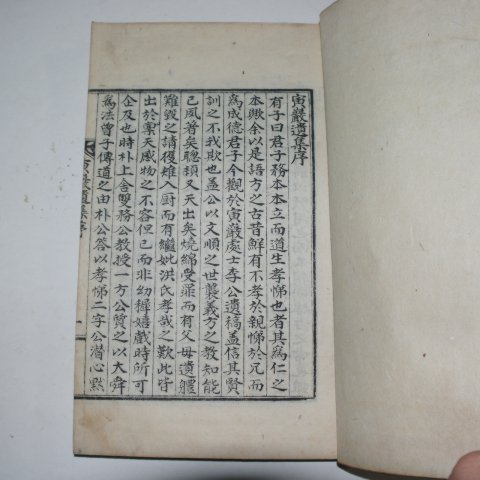 寅巖遺集序
有子曰君子務本本立而道生孝悌也者其爲仁之
本歟余以是語方之古昔鮮有不孝於親悌於兄而
爲成德君子今觀於寅巖處士李公遺稿益信其賢
訓之不我欺也盖公以文順之世襲義方之教知能
已夙著矣聰頴又天出矣燒綿受罪而有父母遺軆
難毁之請後雉入厨而有繼妣洪氏孝哉之歎此皆
出於禀天感物之不容但已而非幼穉嬉戱時所可
企及也時朴上舍雙務公教授一方公質之以大舜
爲法曾子傳道之由朴公答以孝悌二字公潜心黙
寅巖遺集序
一